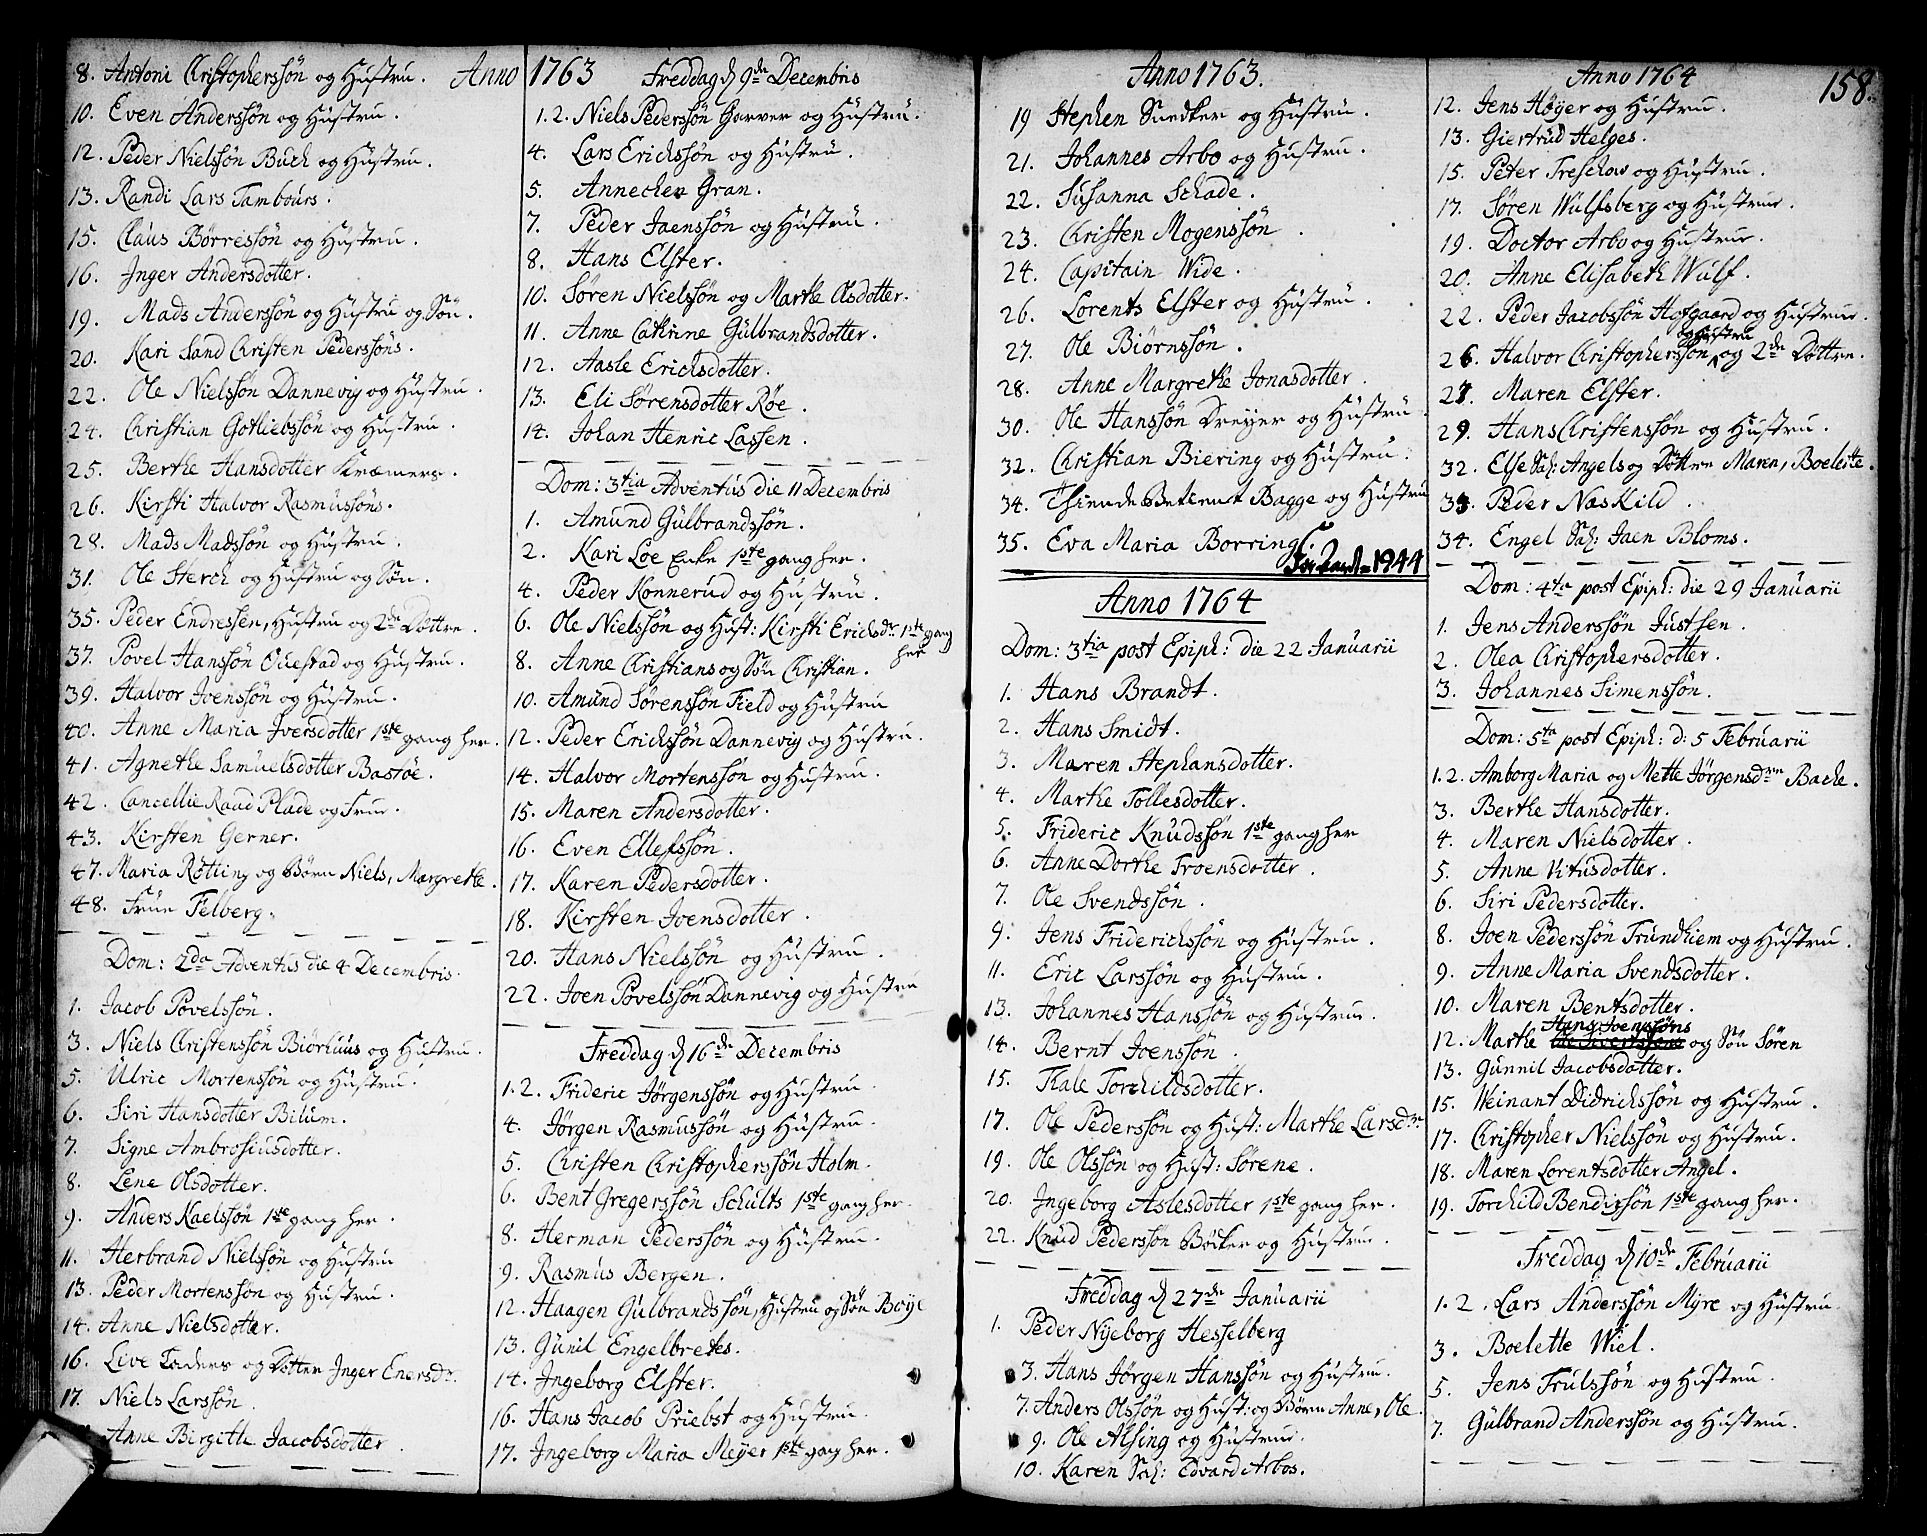 8. Antoni Christophersøn og Hustru. Anno
10. Even Anderssøn og Hustru.
12. Peder Nielsøn Buch og Hustru.
13. Randi Lars Tambours.
15. Claus Børressøn og Hustru.
16. Inger Andersdotter.
19. Mads Anderssøn og Hustru og Søn.
20. Kari Sand Christen Pederssøns.
22. Ole Nielssøn Dannevig og Hustru.
24. Christian Gotliebsøn og Hustru.
25. Berthe Hansdotter Kræmers.
26. Kirsti Halvor Rasmussøns.
28. Mads Madssøn og Hustru.
31. Ole Sterch og Hustru og Søn.
35. Peder Endressen, Hustru og 2de Døttre.
37. Povel Hanssøn Ouestad og Hustru.
39. Halvor Joenssøn og Hustru.
40. Anne Maria Iversdotter 1ste gang her.
41. Agnethe Samuelsdotter Bastøe.
42. Cancellie Raad Plade og Frue.
43. Kirsten Gerner.
47. Maria Røtting og Børn Niels, Margrethe.
48. Frue Felberg.
Dom: 2da Adventus die 4 Decembris.
1. Jacob Povelssøn.
3. Niels Christenssøn Biørhuus og Hustru.
5. Ulric Mortenssøn og Hustru.
6. Siri Hansdotter Bilum.
7. Signe Ambrosiusdotter.
8. Lene Olsdotter.
9. Anders Kaelssøn 1ste gang her.
11. Herbrand Nielssøn og Hustru
13. Peder Mortenssøn og Hustru.
14. Anne Nielsdotter.
16. Live Taders og Dotter Inger Enersdr.
17. Niels Larssøn.
Anne Birgithe Jacobsdotter.
1763 Freddag d 9de Decembris
1.2. Niels Pederssøn Garver og Hustru.
4. Lars Erichssøn og Hustru.
5. Annechen Gran.
7. Peder Jaenssøn og Hustru.
8. Hans Elster.
10. Søren Nielssøn og Marthe Olsdotter.
11. Anne Cathrine Gulbrandsdotter.
12. Aasle Erichsdotter.
13. Eli Sørensdotter Røe.
14. Johan Henric Lassen.
Dom: 3tia Adventus die 11 Decembris
1. Amund Gulbrandssøn.
2. Kari Loe Enke 1ste gang her.
4. Peder Konnerud og Hustru.
6. Ole Nielssøn og Hust: Kirsti Ericksdr. 1ste gang her
8. Anne Christians og Søn Christian.
10. Amund Sørenssøn Field og Hustru
12. Peder Erichssøn Dannevig og Hustru.
14. Halvor Mortenssøn og Hustru.
15. Maren Andersdotter.
16. Even Ellefssøn.
17. Karen Pedersdotter.
18. Kirsten Joensdotter.
20. Hans Nielssøn og Hustru.
22. Joen Povelssøn Dannevig og Hustru
Freddag d 16de Decembris
1.2. Frideric Jørgenssøn og Hustru.
4. Jørgen Rasmussøn og Hustru.
5. Christen Christopherssøn Holm.
6. Bent Gregerssøn Schults 1ste gang her.
8. Herman Pederssøn og Hustru.
9. Rasmus Bergen.
12. Haagen Gulbrandssøn, Hustru og Søn Boÿe
13. Gunil Engelbrets.
14. Ingeborg Elster.
16. Hans Jacob Priebst og Hustru.
17. Ingeborg Maria Meÿer 1ste gang her.
Anno 1763.
19 Stephen Snedker og Hustru.
21. Johannes Arbo og Hustru.
22. Susanna Schade.
23. Christen Mogenssøn.
24. Capitain Wide.
26. Lorents Elster og Hustru.
27. Ole Biørnssøn.
28. Anne Margrethe Jonasdotter.
30. Ole Hanssøn Dreÿer og Hustru.
32. Christian Biering og Hustru.
34. Bagge og Hustru
35. Eva Maria Borring
1944
Anno 1764
Dom: 3tia post Epiph: die 22 Januarii
1. Hans Brandt.
2. Hans Smidt.
3. Maren Stephansdotter.
4. Marthe Tollesdotter.
5. Frideric Knudssøn 1ste gang her
6. Anne Dorthe Troensdotter.
7. Ole Svendssøn.
9. Jens Friderichssøn og Hustru.
11. Eric Larssøn og Hustru.
13. Johannes Hanssøn og Hustru.
14. Bernt Joenssøn.
15. Thale Torchildsdotter.
17. Ole Pederssøn og Hust: Marthe Larsdr.
19. Ole Olssøn og Hust: Sørene.
20. Ingeborg Aslesdotter 1ste gang her.
22. Knud Pederssøn Bødker og Hustru.
Freddag d 27de Januarii
1. Peder Nÿeborg Hesselberg
3. Hans Jørgen Hanssøn og Hustru.
7. Anders Olssøn og Hust: og Børn Anne, Ole.
9. Ole Alsing og Hustrue.
10. Karen Sal: Edvard Arbos.
Anno 1764
158.
12. Jens Høÿer og Hustru.
13. Giertrud Helges.
15. Peter Treschow og Hustru.
17. Søren Wulfsberg og Hustrue.
19. Doctor Arbo og Hustrue.
20. Anne Elisabeth Wulf.
22. Peder Jacobssøn Hofgaard og Hustrue.
og Hustru
26. Halvor Christopherssøn og 2de Døttre.
27. Maren Elster.
29. Hans Christenssøn og Hustru.
32. Else Sal: Angels og Døttre Maren, Boelette.
33. Peder Næskild.
34. Engel Sal: Jaen Bloms.
Dom: 4ta post Epiph: die 29 Januarii
1. Jens Anderssøn Justsen.
2. Olea Christophersdotter.
3. Johannes Simenssøn.
Dom: 5ta post Epiph: d: 5 Februarii
1.2. Amborg Maria og Mette Jørgensdrer Bache.
3. Berthe Hansdotter.
4. Maren Nielsdotter.
5. Anne Vitusdotter.
6. Siri Pedersdotter.
8. Joen Pederssøn Trundhiem og Hustru.
9. Anne Maria Svendsdotter.
10. Maren Bentsdotter.
Hans Joenssøns
12. Marthe og Søn Søren
13. Gunnil Jacobsdotter.
15. Weinant Didrichssøn og Hustru.
17. Christopher Nielssøn og Hustru.
18. Maren Lorentsdotter Angel.
19. Torchild Bendixsøn 1ste gang her.
Freddag d 10de Februarii
1.2. Lars Anderssøn Mÿre og Hustru
3. Boelette Wiel.
5. Jens Trulssøn og Hustru.
7. Gulbrand Anderssøn og Hustru.